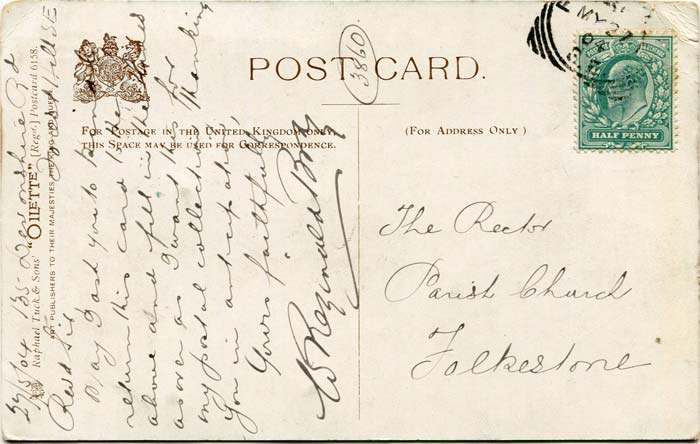 POST CARD.
3860
FOR POSTAGE IN THE UNITED KINGDOM ONLY,
THIS SPACE MAY BE USED FOR CORRESPONDENCE.
(FOR ADDRESS ONLY)
HALF PENNY
The Rector
Parish Church
Folkestone
27/5/04 135 Devonshire Rd
Forest Hill SE
Revd Sir
May I ask you to kindly
return this card
above and fill in the
as soon as I want this for
my postal collection. Thanking
you in anticipation,
Yours faithfully
W Reginald Bray
Raphael Tuck & Sons' "OILETTE" [Regd.] Postcard 6158.
ART PUBLISHERS TO THEIR MAJESTIES THE KING AND QUEEN.